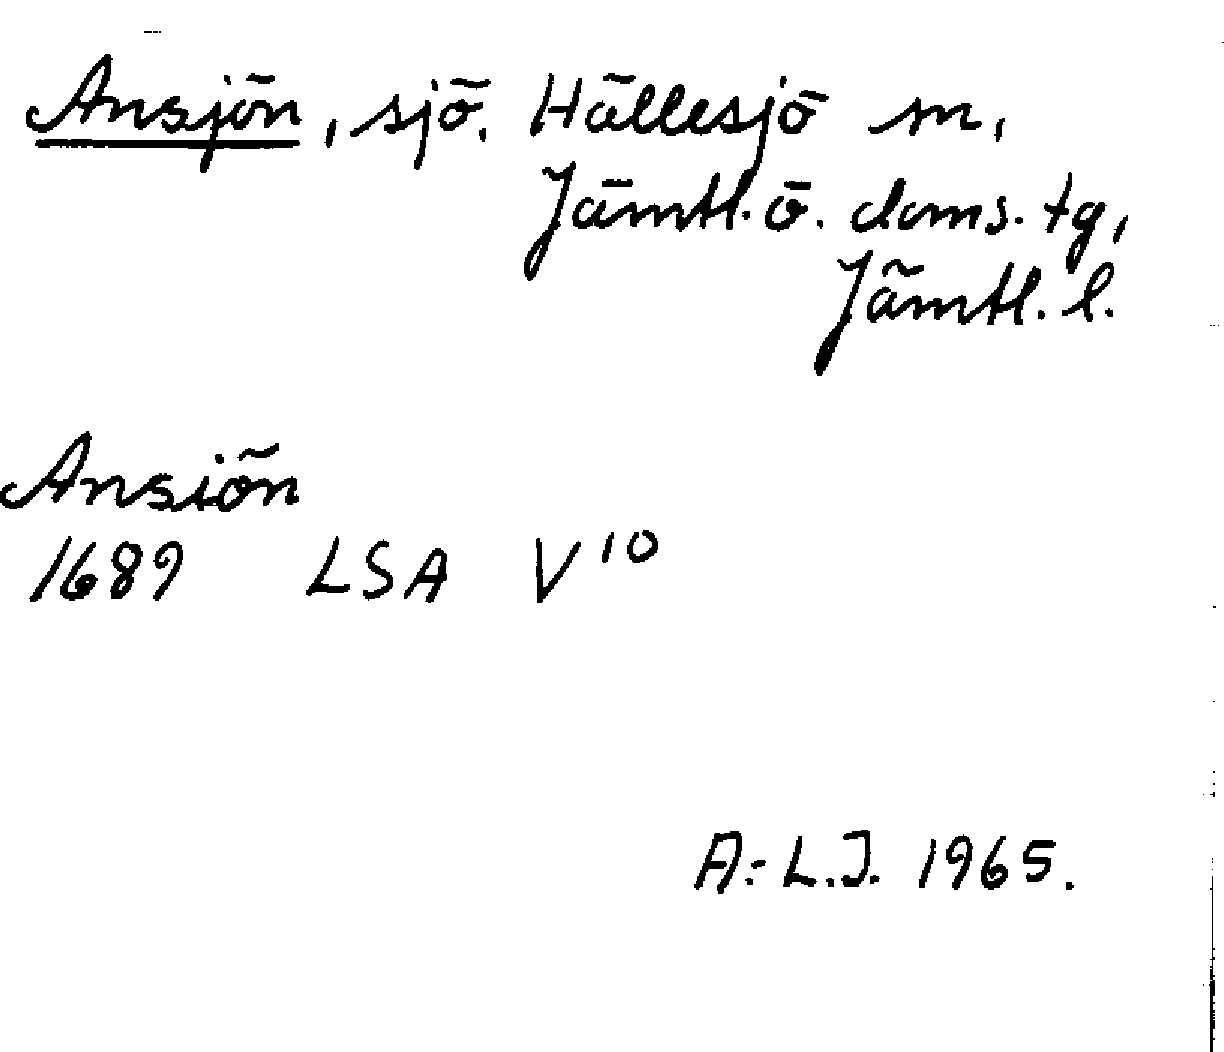 Ansjön, sjö, Hällesjö sn,
Jämtl. ö. doms. tg,
Jämtl. l.
Ansiön
1689 LSA V¹⁰
A:L.J. 1965.